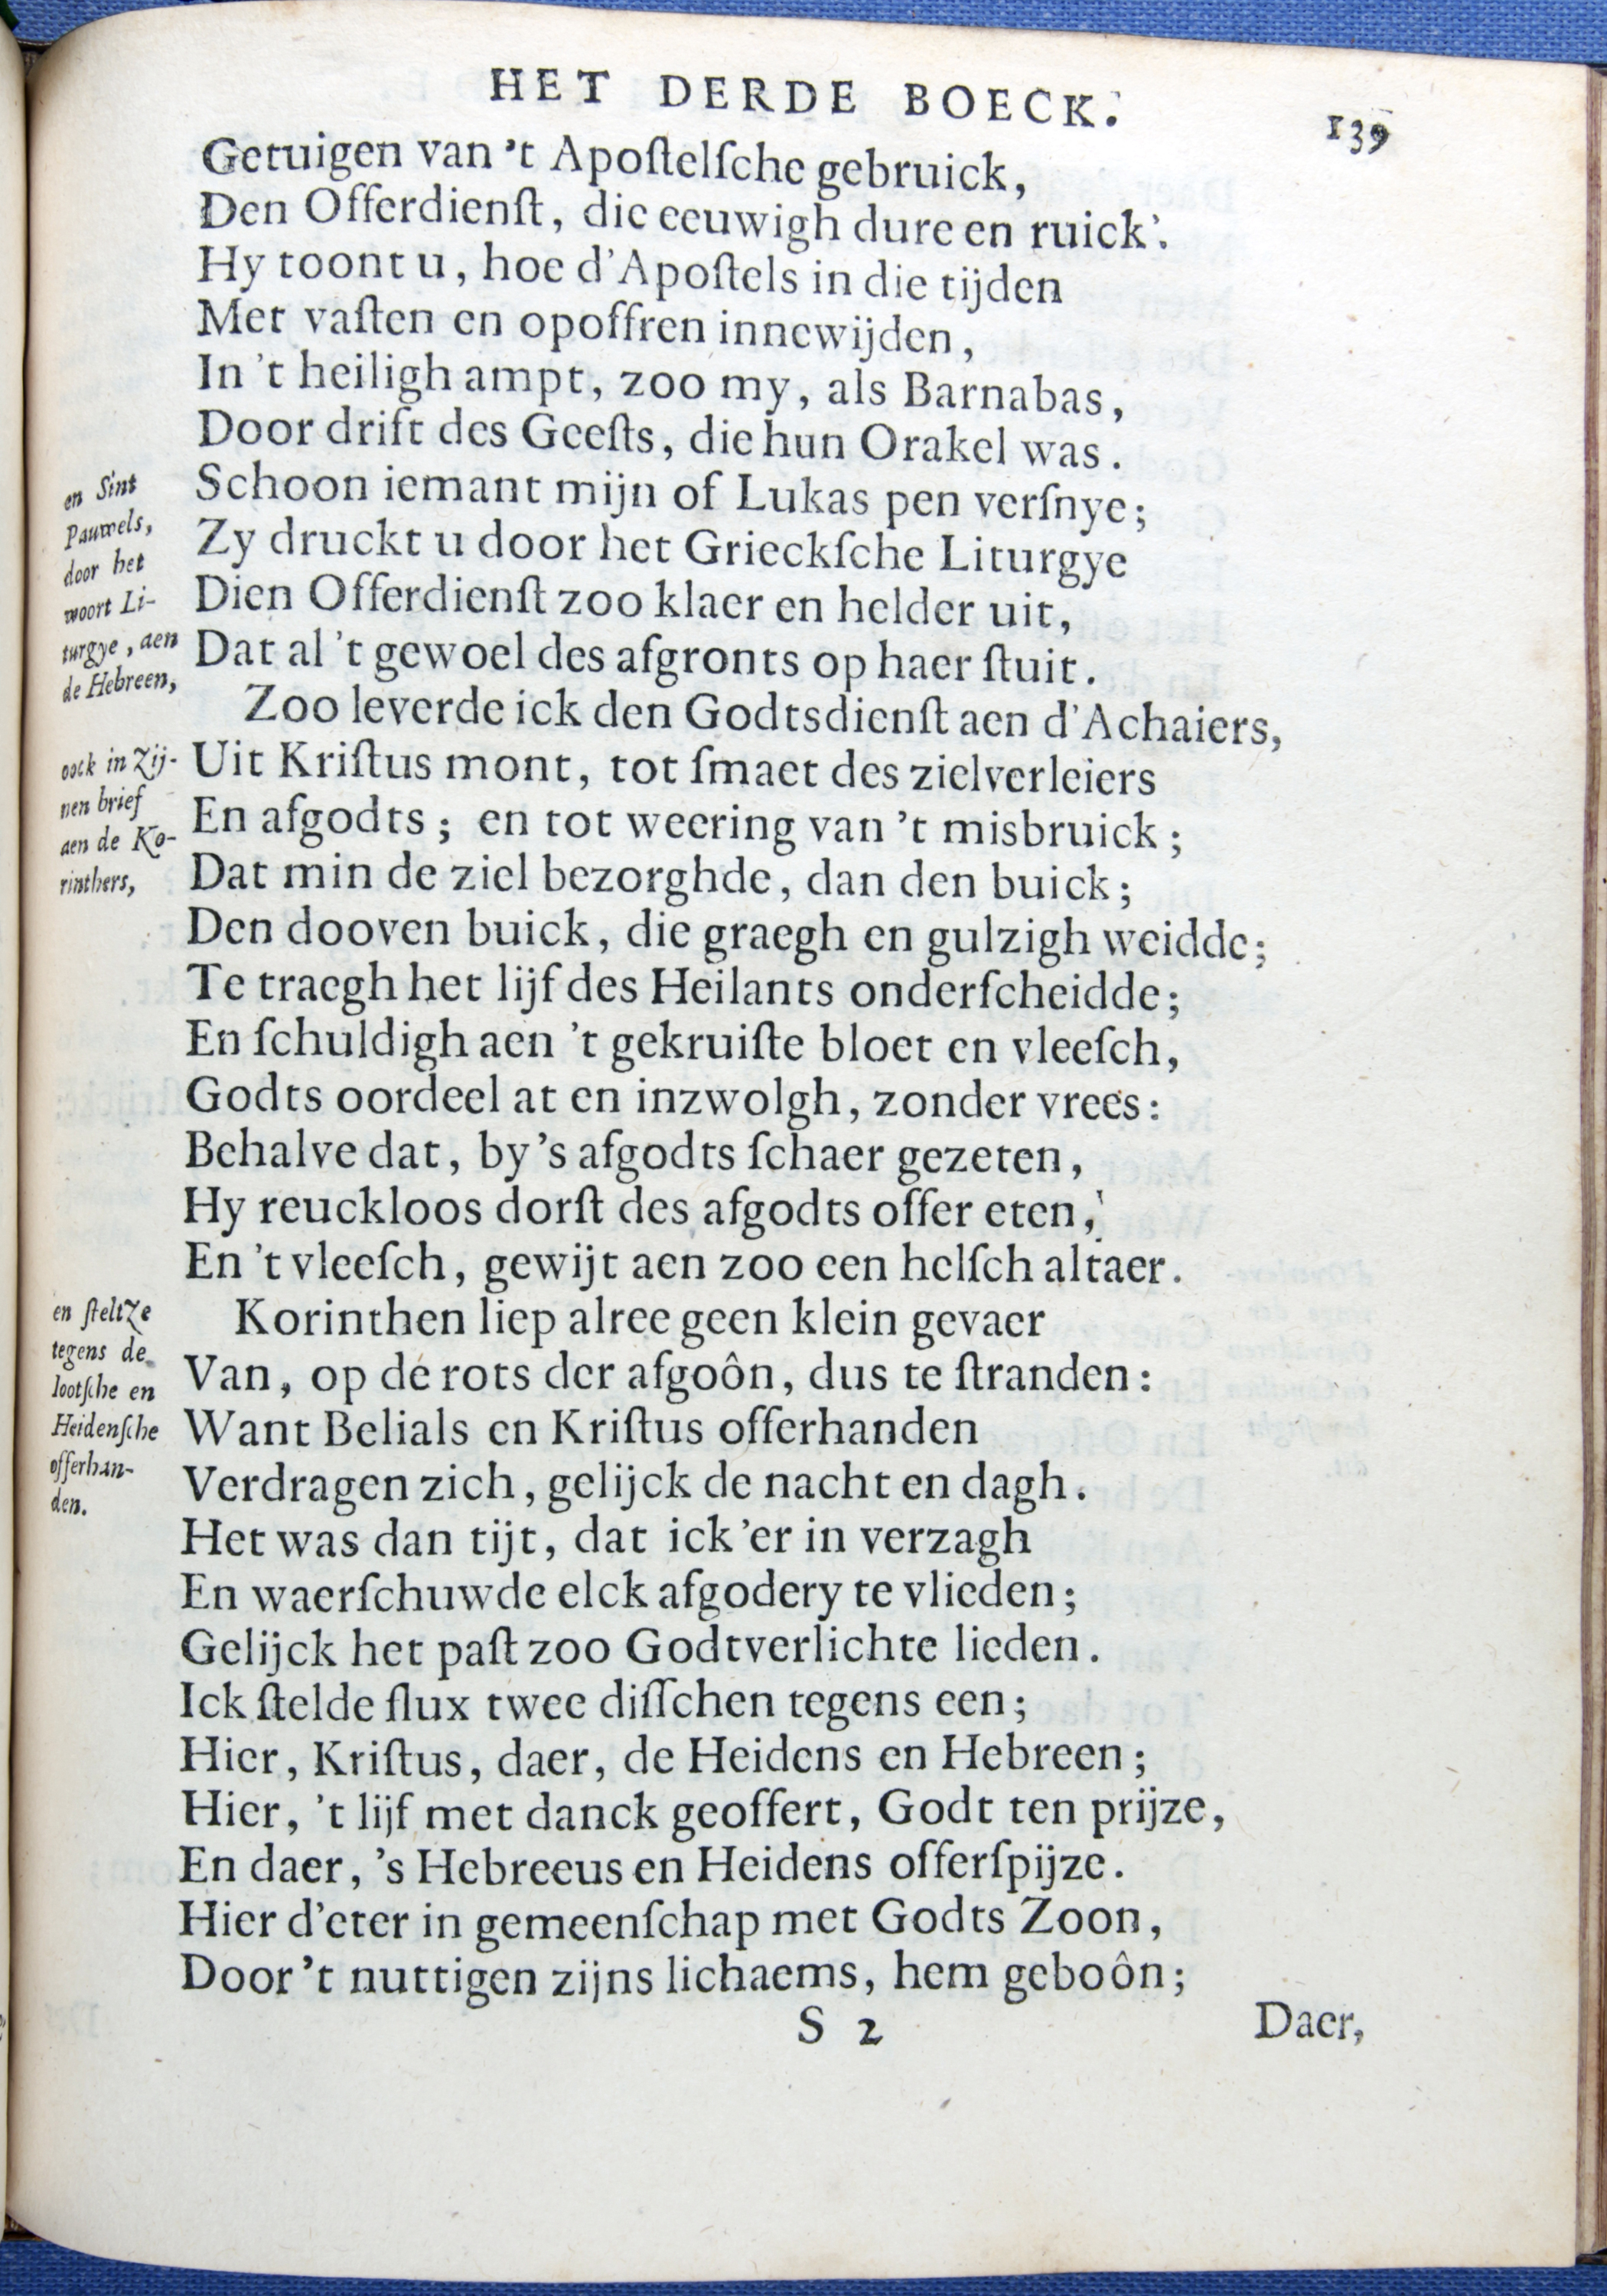 HET DERDE BOECK.
139
Getuigen van 't Apoſtelſche gebruick,
Den Offerdienſt, die eeuwigh dure en ruick'.
Hy toont u, hoe d'Apoſtels in die tijden
Met vaſten en opoffren innewijden,
In 't heiligh ampt, zoo my, als Barnabas,
Door drift des Geeſts, die hun Orakel was.
Schoon iemant mijn of Lukas pen verſnye;
Zy druckt u door het Grieckſche Liturgye
Dien Offerdienſt zoo klaer en helder uit,
Dat al 't gewoel des afgronts op haer ſtuit.
en Sint
Pauwels,
door het
woort Li-
turgye, aen
de Hebreen,
Zoo leverde ick den Godtsdienſt aen d'Achaiers,
Uit Kriſtus mont, tot ſmaet des zielverleiers
En afgodts; en tot weering van 't misbruick;
Dat min de ziel bezorghde, dan den buick;
oock in Zij-
nen brief
aen de Ko-
rinthers,
Den dooven buick, die graegh en gulzigh weidde;
Te traegh het lijf des Heilants onderſcheidde;
En ſchuldigh aen 't gekruiſte bloet en vleeſch,
Godts oordeel at en inzwolgh, zonder vrees:
Behalve dat, by 's afgodts ſchaer gezeten,
Hy reuckloos dorſt des afgodts offer eten,
En 't vleeſch, gewijt aen zoo een helſch altaer.
Korinthen liep alree geen klein gevaer
Van, op de rots der afgoôn, dus te ſtranden:
Want Belials en Kriſtus offerhanden
Verdragen zich, gelijck de nacht en dagh.
en ſteltze
tegens de
Iootſche en
Heidenſche
offerhan-
den.
Het was dan tijt, dat ick 'er in verzagh
En waerſchuwde elck afgodery te vlieden;
Gelijck het paſt zoo Godtverlichte lieden.
Ick ſtelde flux twee diſſchen tegens een;
Hier, Kriſtus, daer, de Heidens en Hebreen;
Hier, 't lijf met danck geoffert, Godt ten prijze,
En daer, 's Hebreeus en Heidens offerſpijze.
Hier d'eter in gemeenſchap met Godts Zoon,
Door 't nuttigen zijns lichaems, hem geboôn;
S 2
Daer,